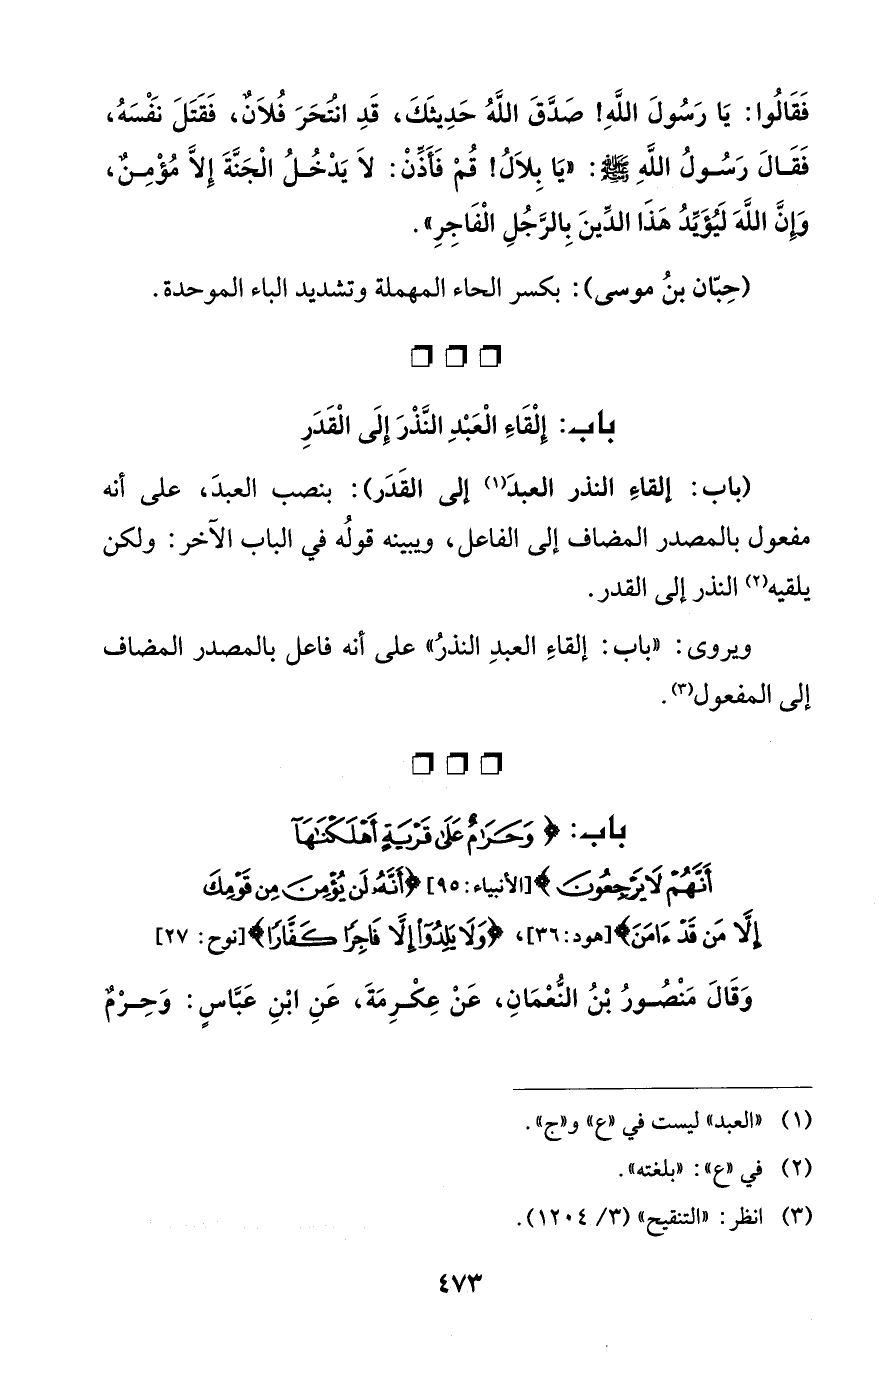 فَقَالُوا: يَا رَسُولَ اللَّهِ! صَدَّقَ اللَّهُ حَدِيثَكَ، قَدِ انْتَحَرَ فُلاَنٌ، فَقَتَلَ نَفْسَهُ،
فَقَالَ رَسُولُ اللَّهِ ﷺ: «يَا بِلاَلُ! قُمْ فَأَذِّنْ: لاَ يَدْخُلُ الْجَنَّةَ إِلاَّ مُؤْمِنٌ،
وَإِنَّ اللَّهَ لَيُؤَيِّدُ هَذَا الدِّينَ بِالرَّجُلِ الْفَاجِرِ».
(حِبّان بنُ موسى): بكسر الحاء المهملة وتشديد الباء الموحدة.
باب: إِلْقَاءِ الْعَبْدِ النَّذْرَ إِلَى الْقَدَرِ
(باب: إلقاءِ النذر العبدَ(١) إلى القَدَر): بنصب العبدَ، على أنه
مفعول بالمصدر المضاف إلى الفاعل، ويبينه قولُه في الباب الآخر: ولكن
يلقيه(٢) النذر إلى القدر.
ويروى: «باب: إلقاءِ العبدِ النذرُ» على أنه فاعل بالمصدر المضاف
إلى المفعول(٣).
باب: ﴿وَحَرَامٌ عَلَىٰ قَرْيَةٍ أَهْلَكْنَاهَا
أَنَّهُمْ لَا يَرْجِعُونَ﴾[الأنبياء: ٩٥] ﴿أَنَّهُ لَن يُؤْمِنَ مِن قَوْمِكَ
إِلَّا مَن قَدْ ءَامَنَ﴾[هود: ٣٦]، ﴿وَلَا يَلِدُوٓا۟ إِلَّا فَاجِرًا كَفَّارًا﴾[نوح: ٢٧]
وَقَالَ مَنْصُورُ بْنُ النُّعْمَانِ، عَنْ عِكْرِمَةَ، عَنِ ابْنِ عَبَّاسٍ: وَحِرْمٌ
(١) «العبد» ليست في «ع» و«ج».
(٢) في «ع»: «بلغته».
(٣) انظر: «التنقيح» (٣/ ١٢٠٤).
٤٧٣